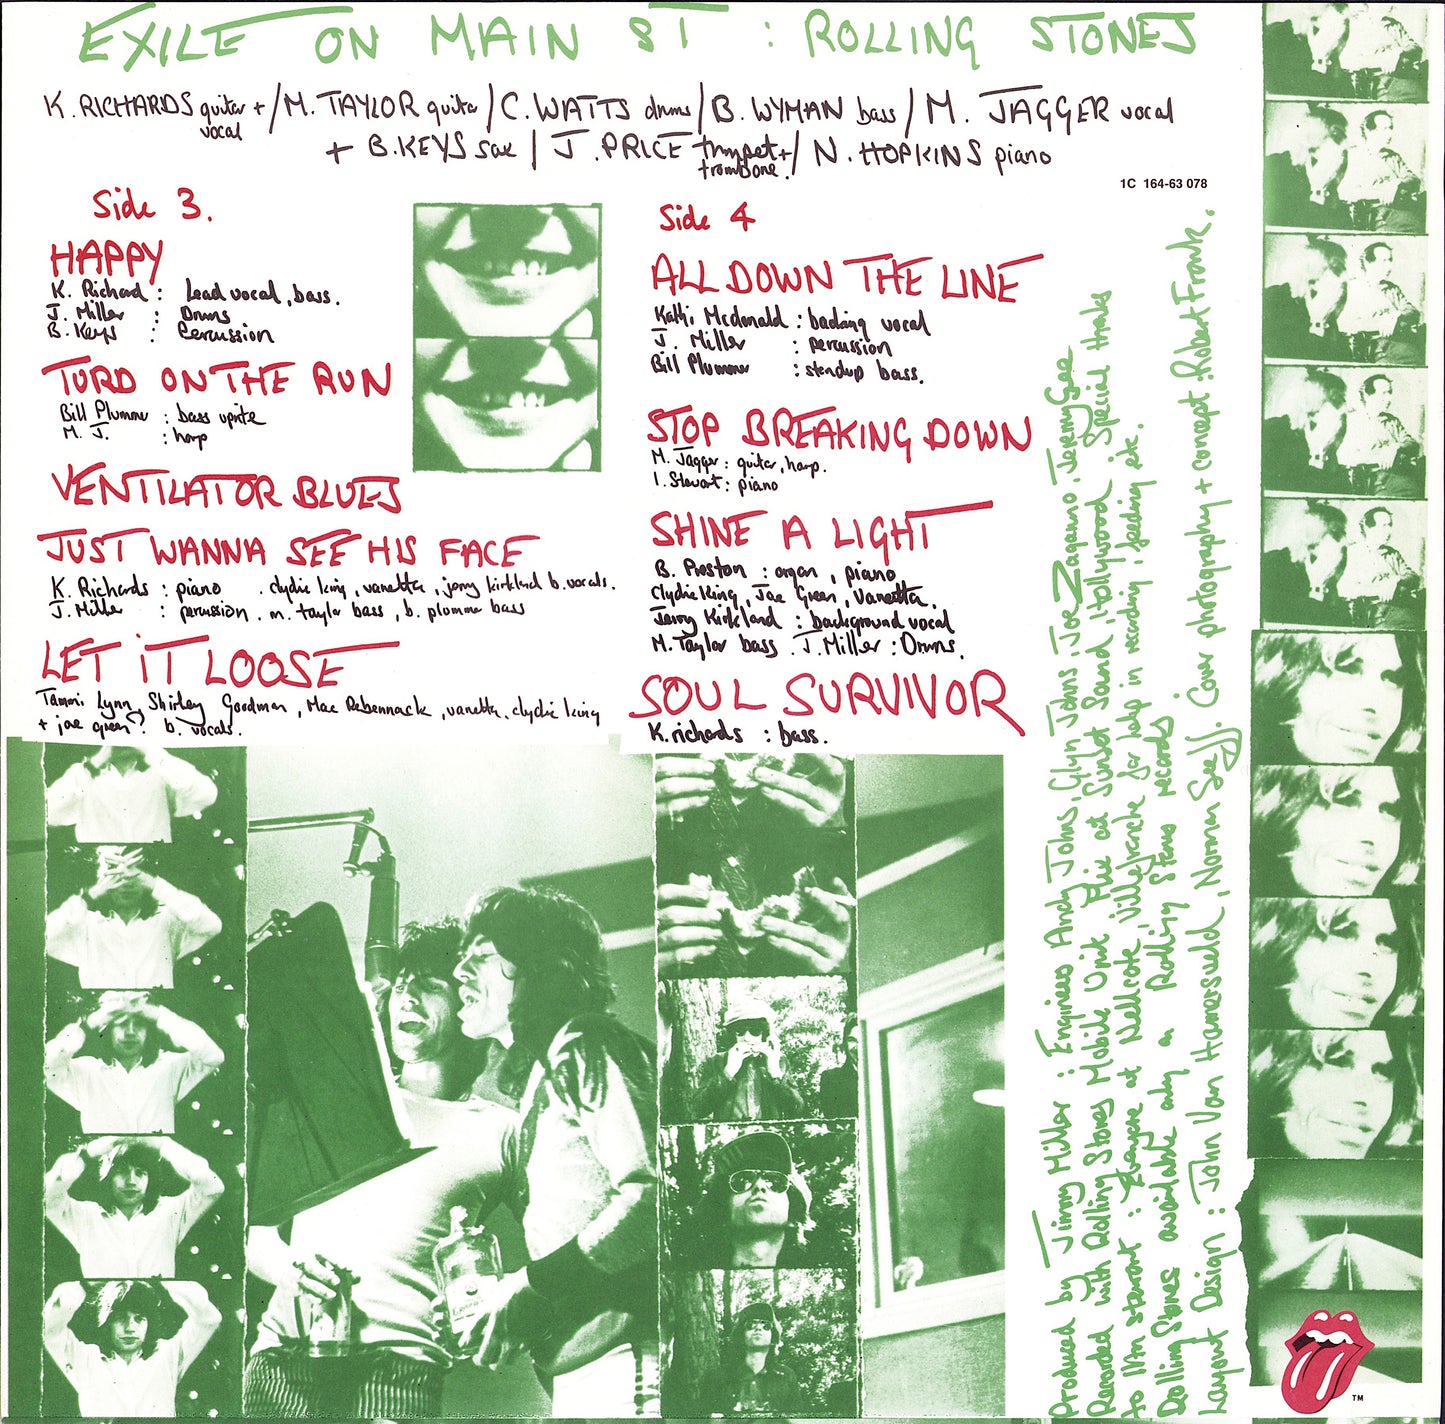 EXILE ON MAIN ST : ROLLING STONES
K. RICHARDS guitar + vocal / M. TAYLOR guitar / C. WATTS drums / B. WYMAN bass / M. JAGGER vocal
+ B. KEYS sax / J. PRICE trumpet + trombone. / N. HOPKINS piano
1C 164-63 078
Side 3.
HAPPY
K. Richard : Lead vocal, bass.
J. Miller : Drums
B. Keys : Percussion
TURD ON THE RUN
Bill Plummer : bass uprite
M. J. : harp
VENTILATOR BLUES
JUST WANNA SEE HIS FACE
K. Richards : piano . clydie king, vanetta, jerry kirkland b. vocals.
J. Miller : percussion. m. taylor bass, b. plummer bass
LET iT LOOSE
Tammi Lynn, Shirley Goodman, Mac Rebennack, vanetta, clydie king
+ joe green? b. vocals.
Side 4
ALL DOWN THE LINE
Kathi Mcdonald : backing vocal
J. Miller : percussion
Bill Plummer : standup bass.
STOP BREAKING DOWN
M. Jagger : guitar, harp.
I. Stewart : piano
SHINE A LIGHT
B. Preston : organ, piano
Clydie King, Joe Green, Vanetta.
Jerry Kirkland : background vocal
M. Taylor bass. J. Miller : Drums.
SOUL SURVIVOR
K. richards : bass.
Produced by Jimmy Miller : Engineers Andy Johns, Glyn Johns, Joe Zagarino, Jeremy Gee
Recorded with Rolling Stones Mobile Unit, Plus at Sunset Sound, Hollywood. Special thanks
to Ian stewart : Everyone at Nellcote, Villefranche for help in recording, feeding etc.
Rolling Stones available only on Rolling Stones records
Layout Design : John Van Hamersveld, Norman Seeff. Cover photography + concept : Robert Frank.
TM